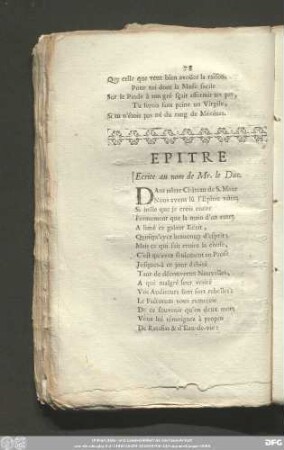 78
Que celle que veut bien avoüer la raison,
Pour toi dont la Muse facile
Sur le Pinde à ton gré sçait affermir tes pas,
Tu serois sans peine un Virgile,
Si tu n'étois pas né du rang de Mécénes.
EPITRE
Ecrite au nom de Mr. le Duc.
DAns nôtre Château de S. Maur
Nous avons lû l'Epître vôtre,
Si belle que je crois encor
Fermement que la main d'un autre
A formé ce galant Ecrit,
Quoiqu'ayez beaucoup d'esprit,
Mais ce qui fait croire la chose,
C'est qu'avez seulement en Prose
Jusques à ce jour débité
Tant de
Nouvelles,
A qui malgré leur vérité
Vos Auditeurs sont fort rebelles:
Le Fabuteau vous remercie
De ce souvenir qu'en deux mots
Vous lui témoignez à propos
De Ratafiat & d'Eau-de-vie: